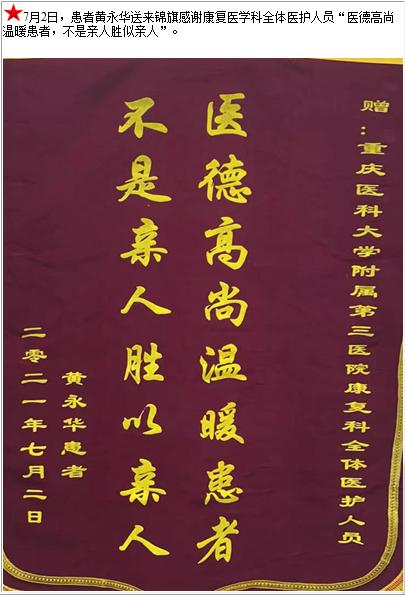 ★7月2日，患者黄永华送来锦旗感谢康复医学科全体医护人员“医德高尚
温暖患者，不是亲人胜似亲人”。
赠：重庆医科大学附属第三医院康复科全体医护人员
医德高尚温暖患者
不是亲人胜以亲人
黄永华患者
二零二一年七月二日